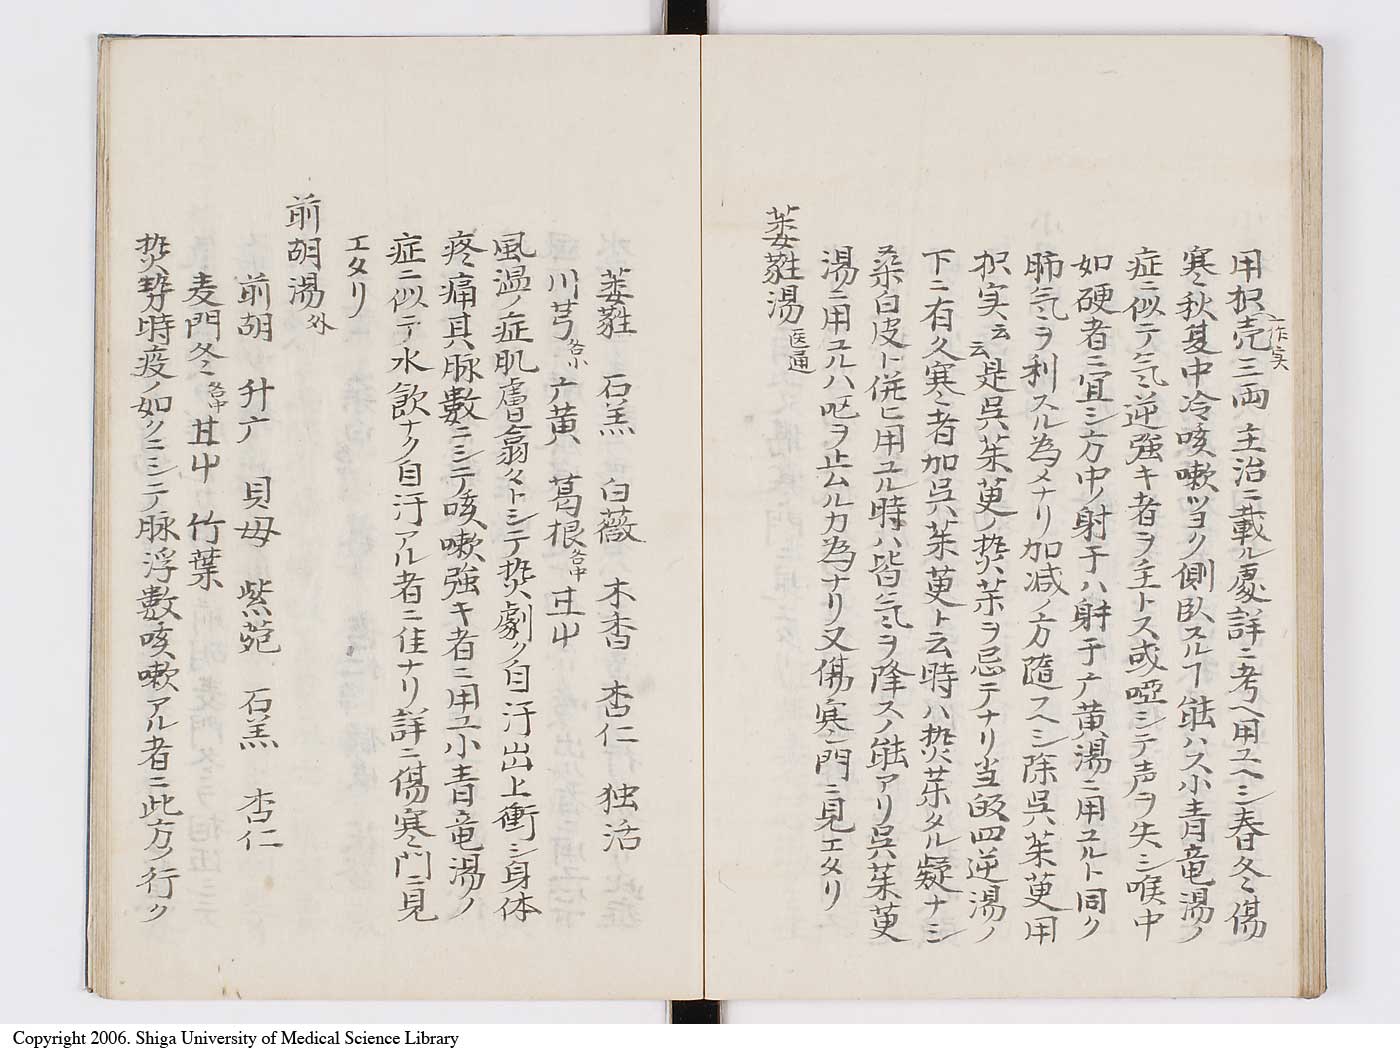 用枳壳一作実三両主治ニ載ル処詳ニ考ヘ用ユヘシ春冬傷
寒秋夏中冷咳嗽ツヨク側臥スルヿ能ハス小青竜湯ノ
症ニ似テ気逆強キ者ヲ主トス或啞シテ声ヲ失シ喉中
如硬者ニ宜シ方中ノ射干ハ射干广黄湯ニ用ユルト同ク
肺気ヲ利スル為メナリ加减ノ方随フヘシ除呉茱萸用
枳実云云是呉茱萸ノ𤍠茱ヲ忌テナリ当皈四逆湯ノ
下ニ有久寒者加呉茱萸ト云時ハ𤍠茱タル疑ナシ
桒白皮ト併ヒ用ユル時ハ皆気ヲ降スノ能アリ呉茱萸
湯ニ用ユルハ呕ヲ止ムルカ為ナリ又傷寒門ニ見エタリ
萎蕤湯 医通
萎蕤 石羔 白薇 木香 杏仁 独活
川芎各小 广黄 葛根各中 甘屮
風温ノ症肌膚翕々トシテ𤍠劇ク自汗出上衝シ身体
疼痛其脉數ニシテ咳嗽強キ者ニ用ユ小青竜湯ノ
症ニ似テ水飲ナク自汗アル者ニ佳ナリ詳ニ傷寒門ニ見
エタリ
前胡湯 外
前胡 升广 貝母 紫菀 石羔 杏仁
麦門冬各中 甘屮 竹葉
𤍠勢時疫ノ如クニシテ脉浮數咳嗽アル者ニ此方ノ行ク
Copyright 2006. Shiga University of Medical Science Library